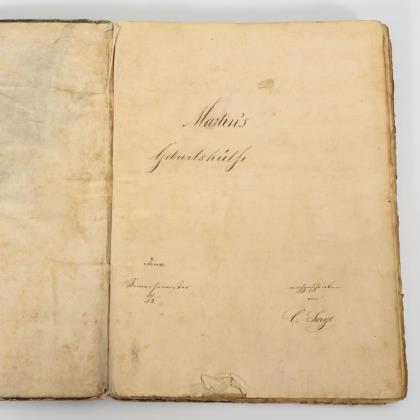 Martin's
Geburtshülfe
Jena
Sommersemester
52.
nachgeschrieben
von
C. Sorge